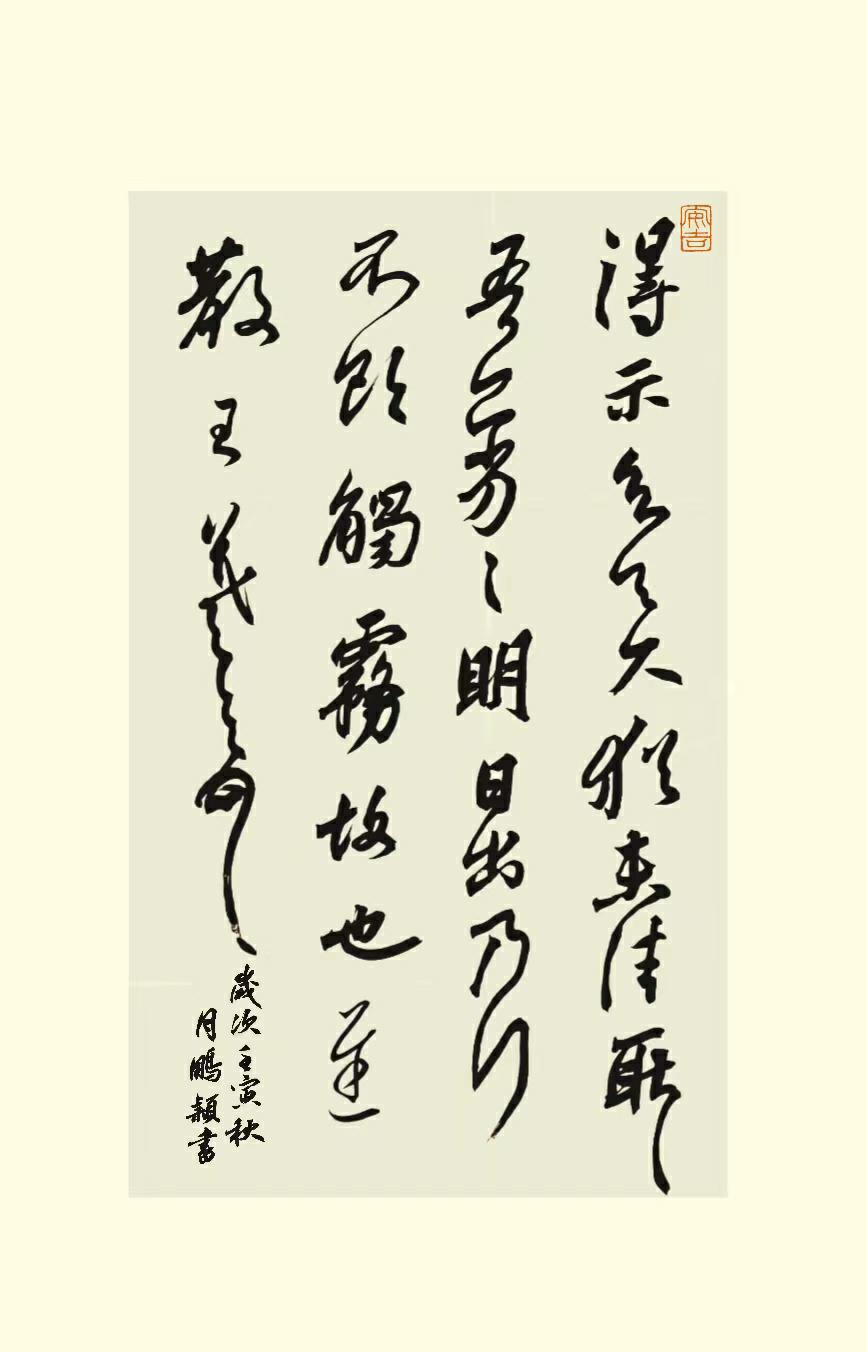 安吉
得示知足下猶未佳耿〻
吾亦劣〻明日出乃行
不欲觸霧故也遲
散王羲之頓首
歲次壬寅秋
月鵬穎書